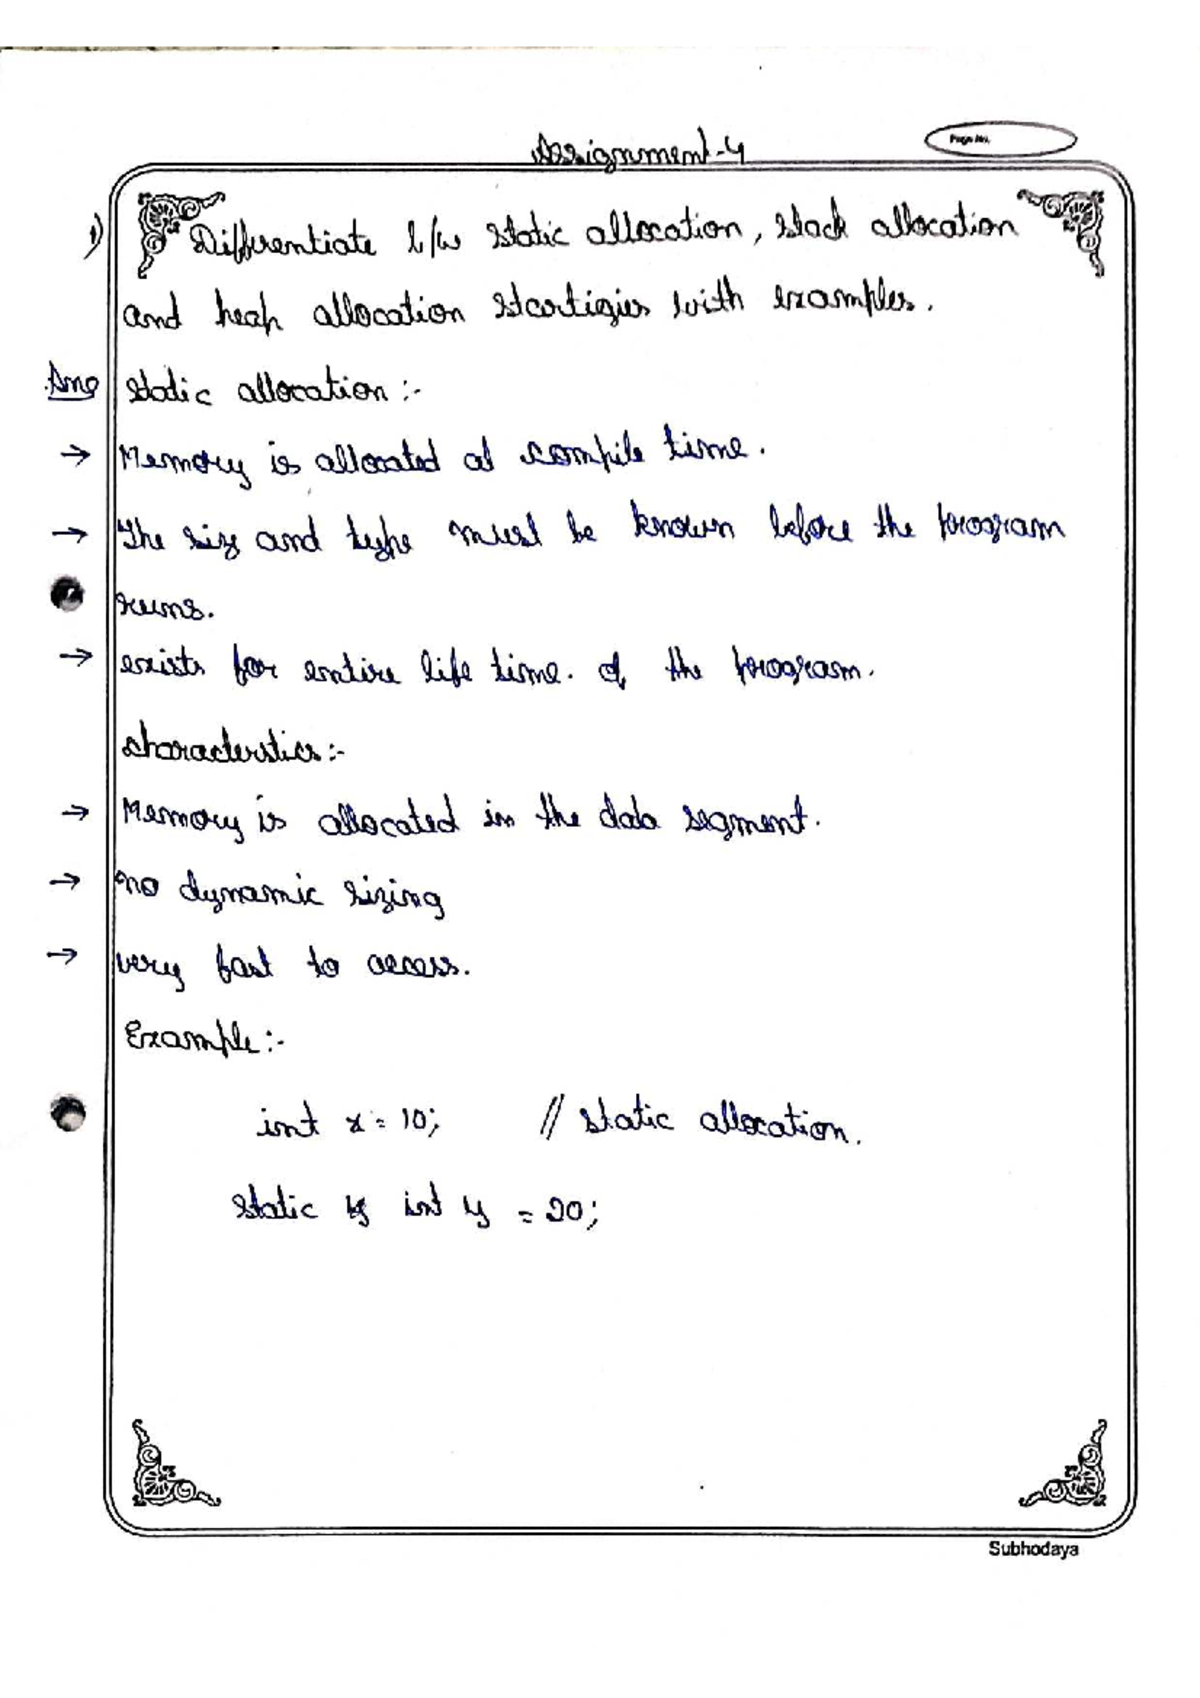 Page No.
Assignment-4
1) Differentiate b/w static allocation, stack allocation
and heap allocation startigies with examples.
Ans static allocation :-
→ Memory is allocated at compile time.
→ The size and type must be known before the program
runs.
→ exists for entire life time. of the program.
characterstics :-
→ Memory is allocated in the data segment.
→ no dynamic sizing
→ very fast to access.
Example :-
int x = 10; // static allocation.
static int y = 20;
Subhodaya